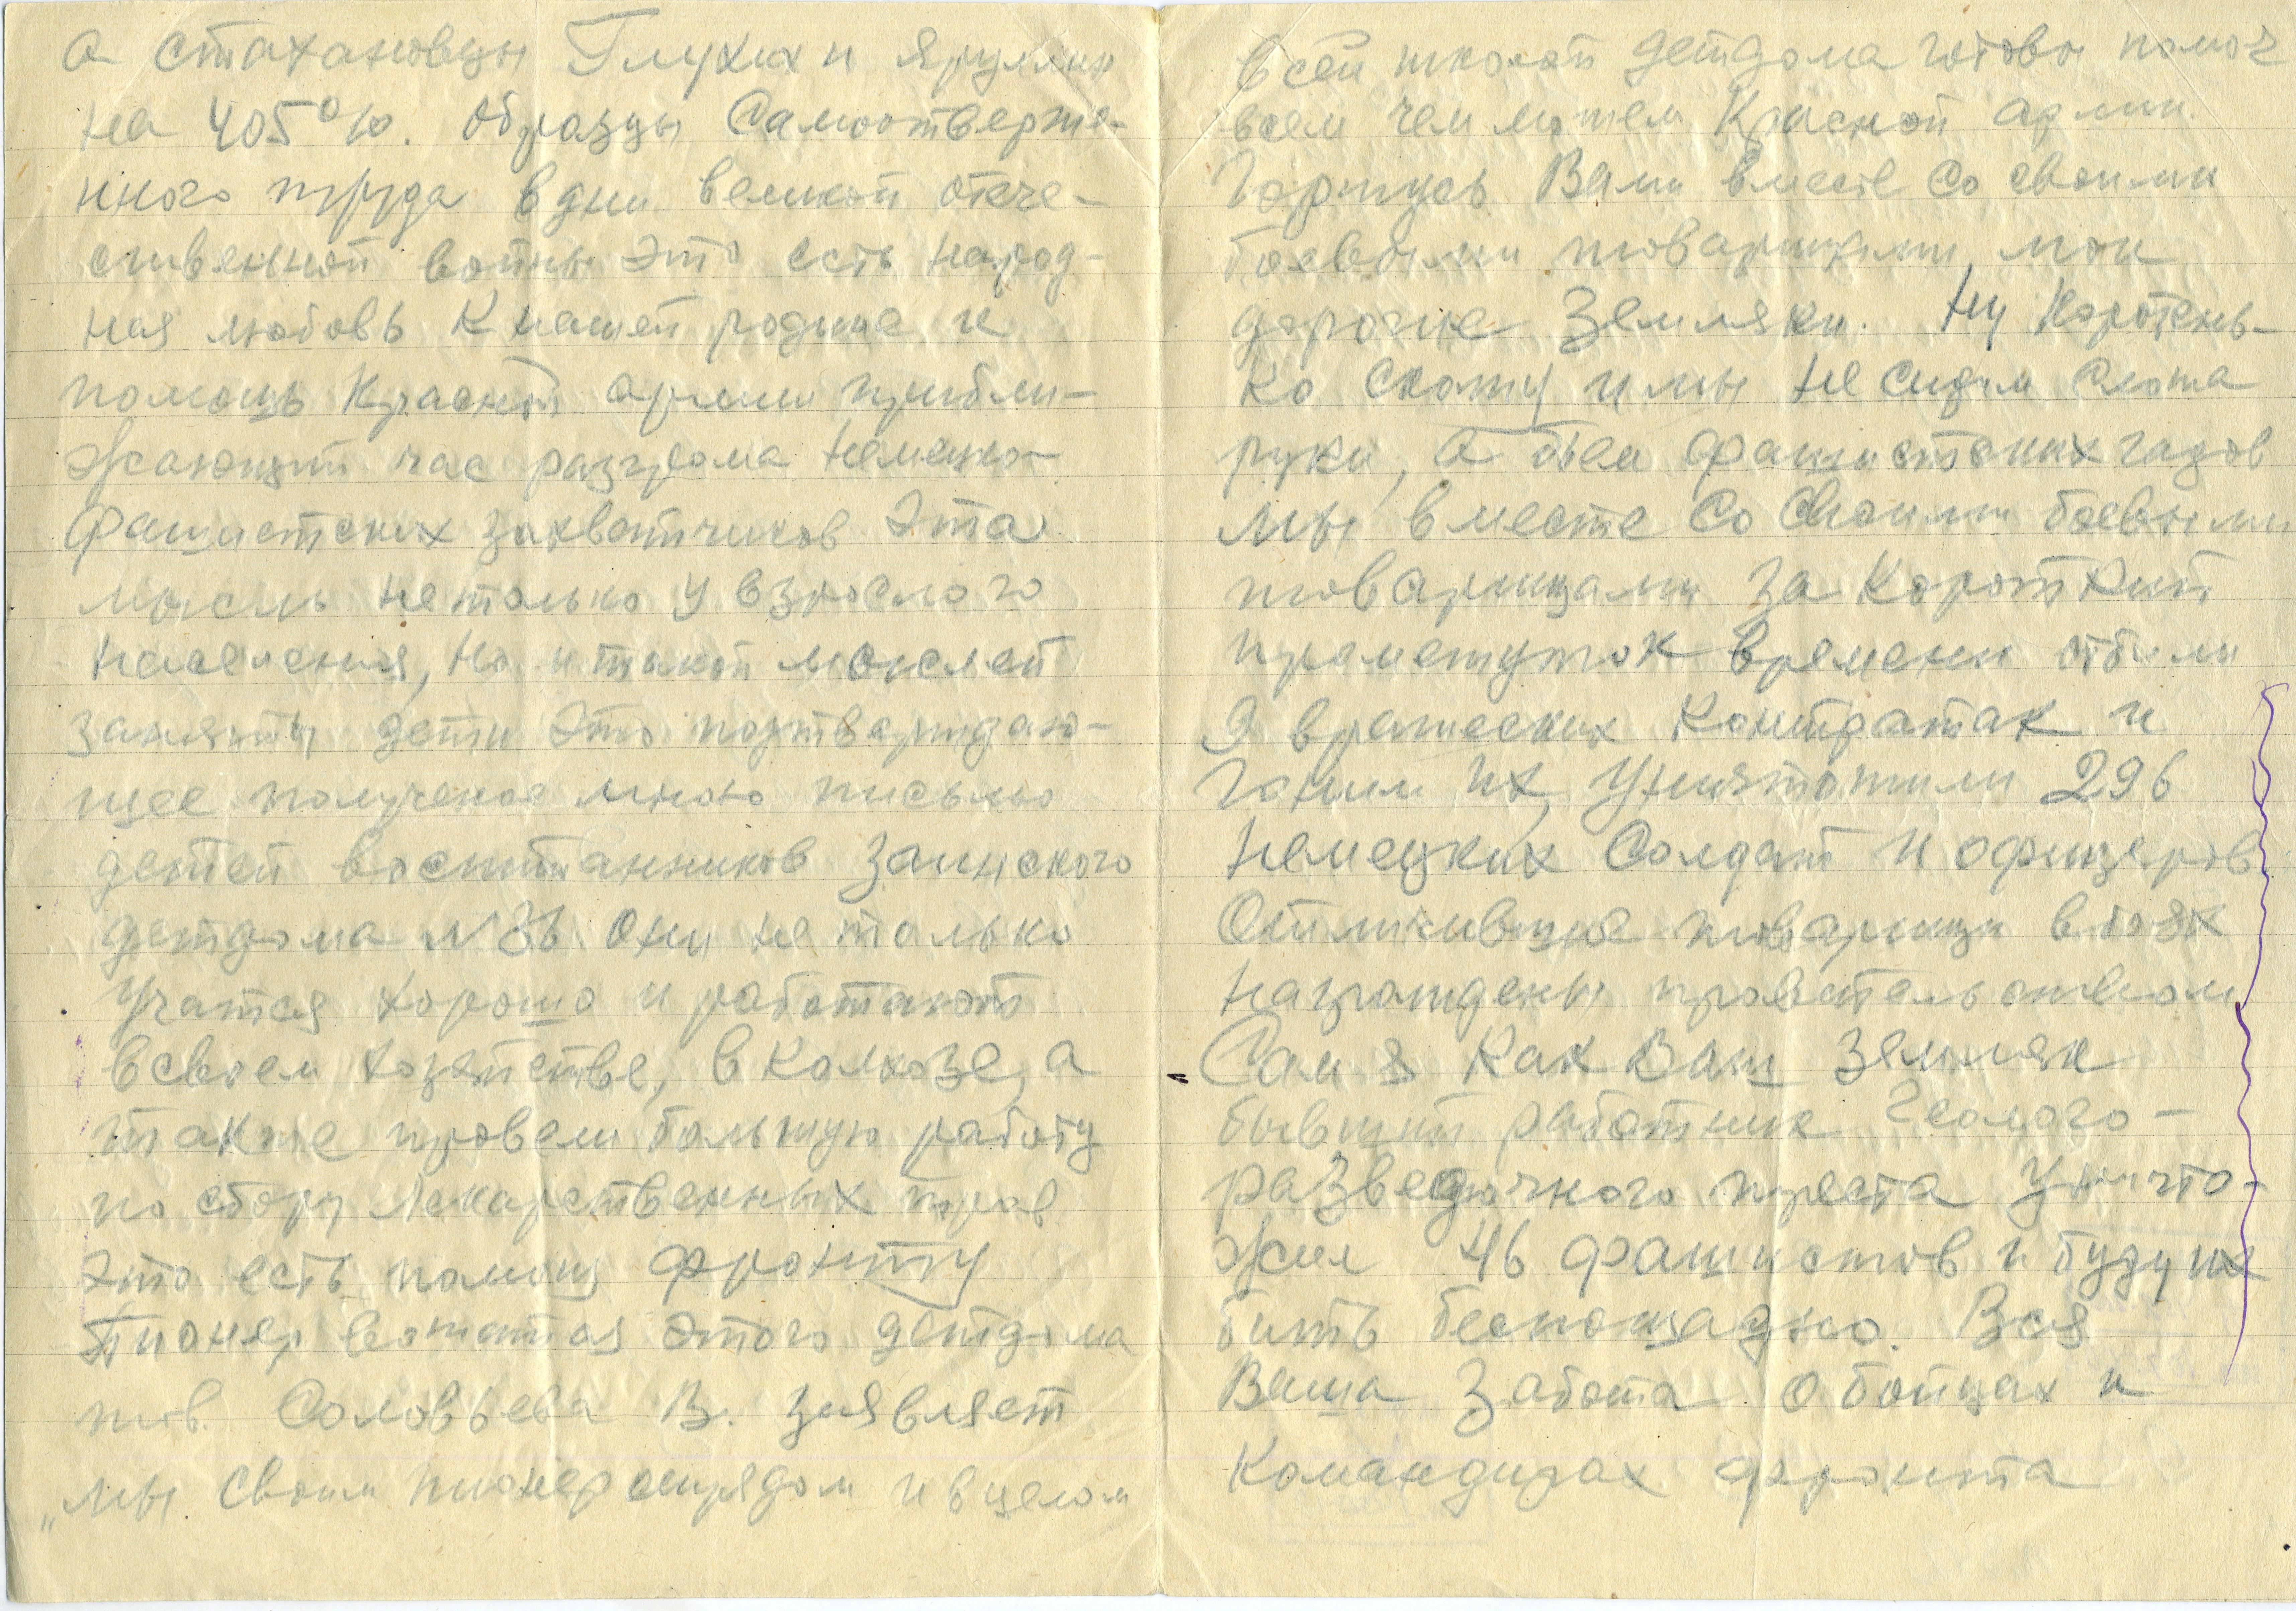 а стахановцы Глухих и Ярулин
на 405%. Образцы Самоотверже-
нного труда в дни великой отече-
ственной войны это есть народ-
ная любовь к нашей родине и
помощь Красной армии прибли-
жающий час разгрома немецко-
фашистских захватчиков Эта
мысль не только у взрослого
населения, но и такой мыслей
заняты дети это подтверждаю-
щее полученое мною письмо
детей воспитанников Заинского
детдома №86 они не только
учатся хорошо и работают
в своем хозяйстве, в колхозе, а
также провели большую работу
по сбору лекарственных трав
это есть помощ фронту
Пионер вожатая этого детдома
тов. Соловьева В. заявляет
„мы своим пионер отрядом и в целом
всей школой детдома готовы помоч
всем чем можем Красной армии.
Горжусь Вами вместе со своими
боевыми товарищами, мои
дорогие Земляки. Ну Коротень-
ко скажу и мы не сидим сложа
руки, а бьем фашистских гадов
мы вместе со своими боевыми
товарищами за короткий
промежуток времени отбили
9 вражеских контратак и
гоним их, Уничтожили 296
немецких солдат и офицеров
Отличившие товарищи в боях
награждены правительством
Сам я как Ваш земляк
бывший работник геолого-
разведочного треста Уничто-
жил 46 фашистов и буду их
бить беспощадно. Вся
Ваша Забота о бойцах и
командирах фронта